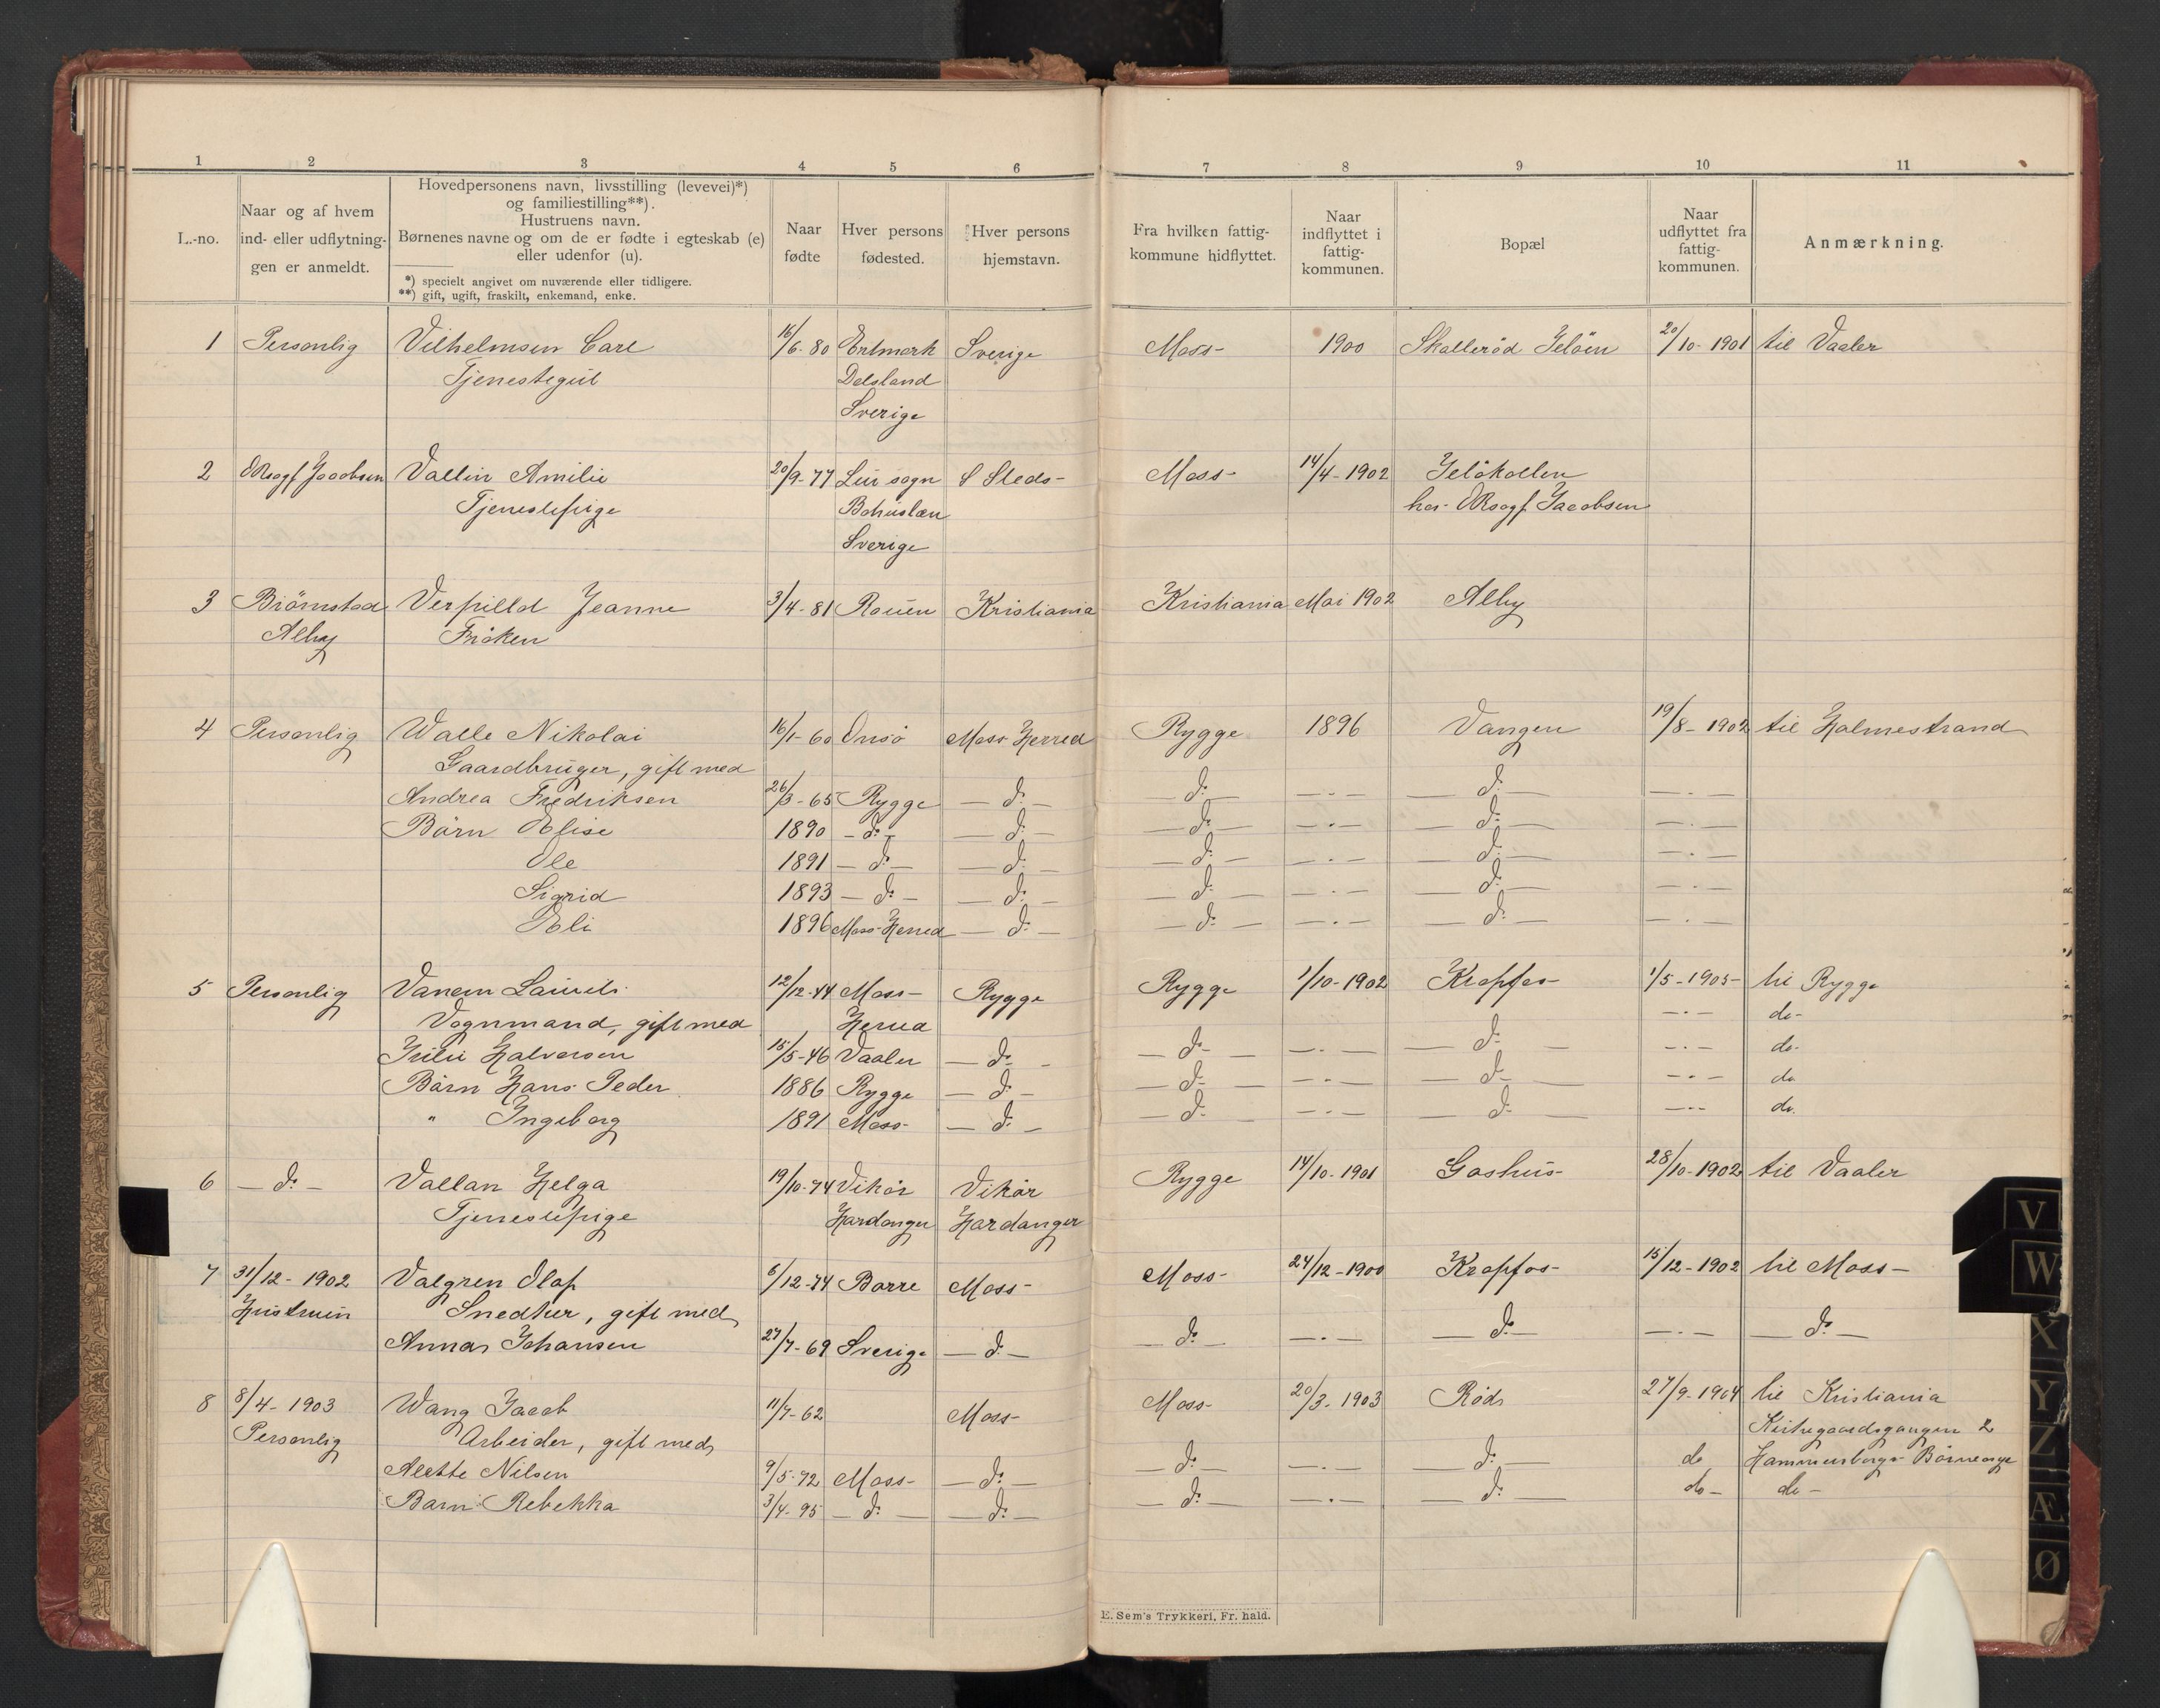 1 2 3 4 5 6 7 8 9 10 11
L.-no.
Naar og af hvem
ind- eller udflytnin-
gen er anmeldt.
Hovedpersonens navn, livsstilling (levevei)*)
og familiestilling**).
Hustruens navn.
Børnenes navne og om de er fødte i egteskab (e)
eller udenfor (u).
*) specielt angivet om nuværende eller tidligere.
**) gift, ugift, fraskilt, enkemand, enke.
Naar
fødte
Hver persons
fødested.
Hver persons
hjemstavn.
Fra hvilken fattig-
kommune hidflyttet.
Naar
indflyttet i
fattig-
kommunen.
Bopæl
Naar
udflyttet fra
fattig-
kommunen.
Anmærkning.
1 Personlig Vilhelmsen Carl 16/6-80 Ertmark Sverige Moss- 1900 Skallerød Jeløen 20/10-1901 til Vaaler
Tjenestegut Dalsland
Sverige
2 ORsagf Jacobsen Vallin Amilie 20/9-77 Lur sogn S Steds- Moss- 14/4-1902 Jeløkollen
Tjenestepige Bohuslæn hos ORsagf Jacobsen
Sverige
3 Biørnstad Verpilld Jeanne 3/4-81 Rouen Kristiania Kristiania Mai 1902 Alby
Alby Frøken
4 Personlig Walle Nikolai 16/1-60 Onsø Moss Herred Rygge 1896 Vangen 19/8-1902 til Holmestrand
Gaardbruger, gift med
Andrea Fredriksen 26/3-65 Rygge — do — — do — — . — — do — — . —
Børn Elise 1890 — do — — do — — do — — . — — do — — . —
Ole 1891 — do — — do — — do — — . — — do — — . —
Sigrid 1893 — do — — do — — do — — . — — do — — . —
Eli 1896 Moss Herred — do — — do — — . — — do — — . —
5 Personlig Vanem Laurits 12/12-44 Moss- Rygge Rygge 1/10-1902 Krapfos- 1/5-1905- til Rygge
Vognmand, gift med Herred — . — do-
Julie Halvorsen 15/5-46 Vaaler — do — — do — — . — — do — — . — do-
Børn Hans Peder 1886 Rygge — do — — do — — . — — do — — . — do
" Ingeborg 1891 Moss- — do — — do — — . — — do — — . — do.
6 — do — Vallan Helga 19/10-74 Vikør Vikør Rygge 14/10-1901 Gashus- 28/10-1902 til Vaaler
Tjenestepige Hardanger Hardanger
7 31/12-1902 Valgren Olaf 6/12-74 Borre Moss- Moss- 24/12-1900 Krapfos- 15/12-1902 til Moss-
Hustruen Snedker, gift med
Anna Johansen 27/7-69 Sverige — do — — do — — . — — do — — . — — do —
8 8/4-1903 Wang Jacob 11/7-62 Moss- Moss- 20/3-1903 Rød 27/9-1904 til Kristiania
Personlig Arbeider, gift med Kirkegaardsgangen 2
Alette Nilsen 9/5-72 Moss- — do — — do — — . — — do — do Hammersborgs Børneasyl
Barn Rebekka 3/4-95 — do — — do — — do — — . — — do — do- do-
E. Sem's Trykkeri, Fr. hald.
V
W
X
Y
Z
Æ
Ø